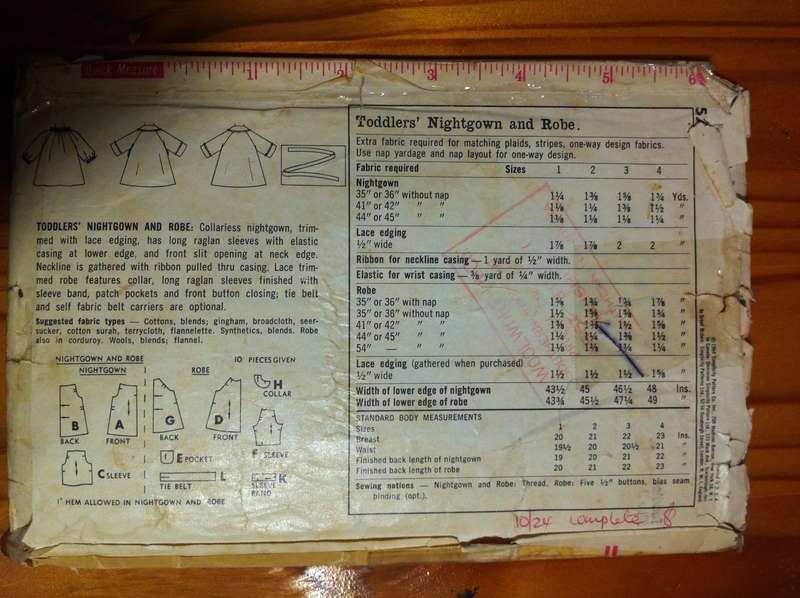 Quick Measure 1 2 3 4 5 6
TODDLERS' NIGHTGOWN AND ROBE: Collarless nightgown, trim-
med with lace edging, has long raglan sleeves with elastic
casing at lower edge, and front slit opening at neck edge.
Neckline is gathered with ribbon pulled thru casing. Lace trim-
med robe features collar, long raglan sleeves finished with
sleeve band, patch pockets and front button closing; tie belt
and self fabric belt carriers are optional.
Suggested fabric types — Cottons, blends; gingham, broadcloth, seer-
sucker, cotton surah, terrycloth, flannelette. Synthetics, blends. Robe
also in corduroy. Wools, blends; flannel.
NIGHTGOWN AND ROBE 10 PIECES GIVEN
NIGHTGOWN ROBE
H
COLLAR
B A G D
BACK FRONT BACK FRONT
C SLEEVE E POCKET F SLEEVE
L K
TIE BELT SLEEVE
BAND
1" HEM ALLOWED IN NIGHTGOWN AND ROBE
Toddlers' Nightgown and Robe.
Extra fabric required for matching plaids, stripes, one-way design fabrics.
Use nap yardage and nap layout for one-way design.
Fabric required Sizes 1 2 3 4
Nightgown
35" or 36" without nap 1¼ 1⅜ 1⅝ 1¾ Yds.
41" or 42" " " 1⅛ 1¼ 1⅜ 1½ "
44" or 45" " " 1⅛ 1⅛ 1¼ "
Lace edging
½" wide 1⅞ 1⅞ 2 2 "
Ribbon for neckline casing — 1 yard of ½" width.
Elastic for wrist casing — ⅜ yard of ¼" width.
Robe
35" or 36" with nap 1⅝ 1¾ 1¾ 1⅞ "
35" or 36" without nap 1½ 1⅝ 1¾ "
41" or 42" " " 1⅜ 1½ 1⅝ "
44" or 45" " " 1¼ 1¼ 1⅜ 1½ "
54" — " " 1¼ 1¼ "
Lace edging (gathered when purchased)
½" wide 1½ 1½ 1½ 1⅝ "
Width of lower edge of nightgown 43½ 45 46½ 48 Ins.
Width of lower edge of robe 43¾ 45½ 47¼ 49 "
STANDARD BODY MEASUREMENTS
Sizes 1 2 3 4
Breast 20 21 22 23 Ins.
Waist 19½ 20 20½ 21 "
Finished back length of nightgown 19 20 21 22 "
Finished back length of robe 20 21 22 23 "
Sewing notions — Nightgown and Robe: Thread. Robe: Five ½" buttons, bias seam
binding (opt.).
10/24 complete 8